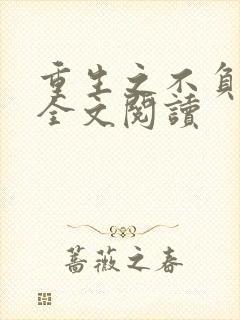 重生之不負
全文閱讀
薔薇之春